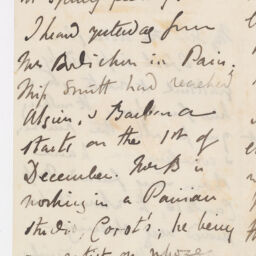 I heard yesterday from
Mrs Bodichon in Paris,
Miss Smith had reached
Algiers, & Barbara
starts on the 1st of
December. Mrs B is
working in a Parisian
studio, Corot's; he being
whose